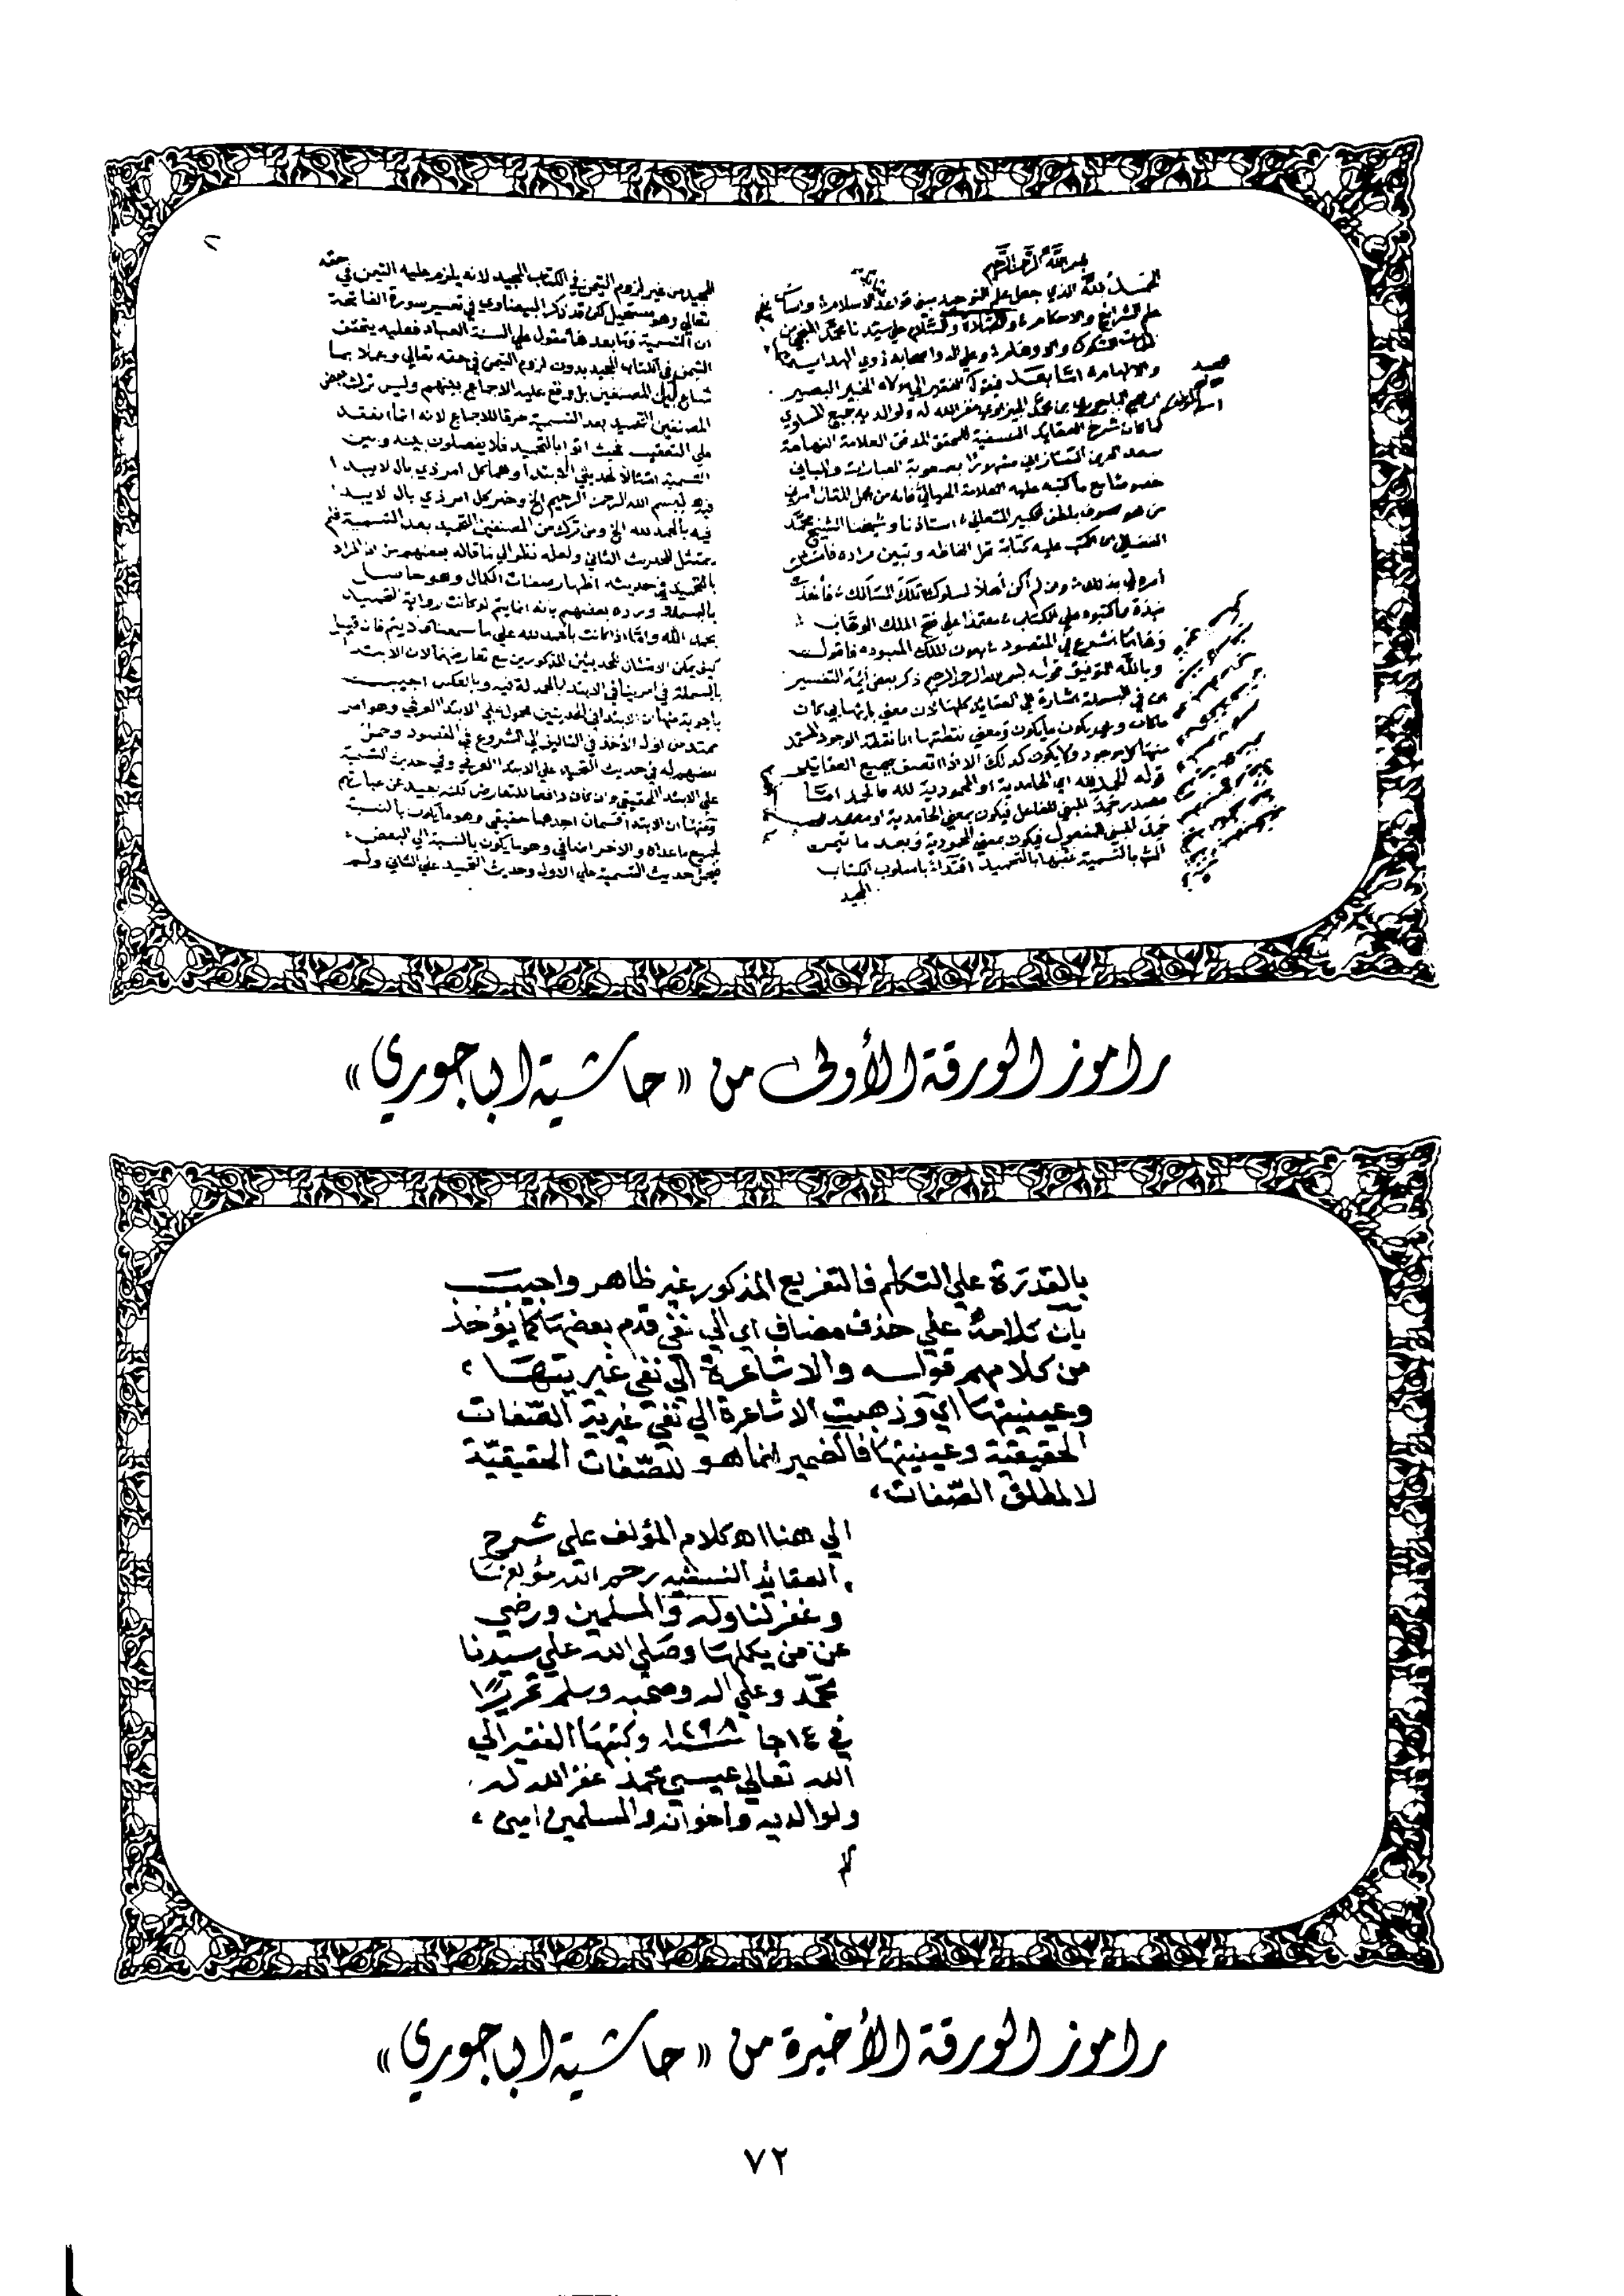 بسم الله الرحمن الرحيم
الحمد لله الذي جعل علم التوحيد مبنى قواعد الاسلام واساس
علم الشرائع والاحكام والصلاة والسلام على سيدنا محمد المنجي من
الشكوك والاوهام وعلى اله واصحابه ذوي الهداية
والالهام اما بعد فيقول الفقير الى مولاه الخبير البصير
ابراهيم الباجوري بن محمد الجيزاوي غفر الله له ولوالديه جميع المساوي
لما كان شرح العقايد النسفية للمحقق المدقق العلامة الفهامة
سعد الدين التفتازاني مشهورا بصعوبة العبارات والمباني
خصوصا مع ما كتبه عليه العلامة الخيالي فانه من اجل المقال امرني
من هو ملطف الكبير المتعالي استاذنا وشيخنا الشيخ محمد
الفضالي ان اكتب عليه كتابة تحل الفاظه وتبين مراده فامتثلت
امره في ذلك وان لم اكن اهلا لسلوك تلك المسالك فأخذت
نبذة مما كتبوه على الكتاب معتمدا على فتح الملك الوهاب
وها انا اشرع في المقصود بعون الملك المعبود فاقول
وبالله التوفيق قوله بسم الله الرحمن الرحيم ذكر بعض أيمة التفسير
ان في البسملة اشارة الى العقايد كلها لان معنى بائها بي كان
ما كان وبي يكون ما يكون ومعنى نقطتها انا نقطة الوجود المستمد
منها كل موجود ولا يكون كذلك الا اذا اتصف بجميع العقايد
قوله الحمد لله اي الحامدية او المحمودية لله فالحمد اما
مصدر حمد المبني للفاعل فيكون بمعنى الحامدية او مصدر
حمد المبني للمفعول فيكون بمعنى المحمودية وبعد ما تيمن
بالتسمية عقبها بالتحميد اقتداء باسلوب الكتاب
المجيد
٢
المجيد من غير لزوم التيمن في الكتاب المجيد لانه يلزم عليه التيمن في حقه
تعالى وهو مستحيل لكن قد ذكر البيضاوي في تفسير سورة الفاتحة
ان التسمية وما بعدها مقول على السنة العباد فعليه يتحقق
التيمن في الكتاب المجيد بدون لزوم التيمن في حقه تعالى وعملا بما
شاع بين المصنفين بل وقع عليه الاجماع بينهم وليس ترك بعض
المصنفين التحميد بعد التسمية خرقا للاجماع لانه انما انعقد
على التعقيب بحيث اتوا بالتحميد فلا يفصلون بينه وبين
التسمية امتثالا لحديثي الابتدا وهما كل امر ذي بال لا يبدا
فيه ببسم الله الرحمن الرحيم الخ وخبر كل امر ذي بال لا يبدا
فيه بالحمد لله الخ ومن ترك من المصنفين التحميد بعد التسمية فلم
يمتثل للحديث الثاني ولعله نظر الى ما قاله بعضهم من ان المراد
بالتحميد في حديثه اظهار صفات الكمال وهو حاصل
بالبسملة ورده بعضهم بانه انما يتم لو كانت رواية التحميد
بحمد الله واما اذا كانت بالحمد لله على ما سمعنا فلا يتم فان قيل
كيف يمكن الامتثال للحديثين المذكورين مع تعارضهما لان الابتدا
بالبسملة في امر ينافي الابتدا بالحمدلة فيه وبالعكس اجيب
باجوبة منها ان الابتدا في الحديثين محمول على الابتدا العرفي وهو امر
ممتد من اول الأخذ في التاليف الى الشروع في المقصود وحمل
بعضهم له في حديث التحميد على الابتدا العرفي وفي حديث التسمية
على الابتدا الحقيقي وان كان دافعا للتعارض لكنه بعيد عن عبارتهم
ومنها ان الابتدا قسمان احدهما حقيقي وهو ما يكون بالنسبة
لجميع ما عداه والاخر اضافي وهو ما يكون بالنسبة الى البعض
فيحمل حديث التسمية على الاول وحديث التحميد على الثاني ولم
راموز الورقة الأولى من «حاشية الباجوري»
بالقدرة علي التكلم فالتفريع المذكور غير ظاهر واجيب
بان كلامه علي حذف مضاف اي الي نفي قدم بعضها كما يؤخذ
من كلامهم قوله والاشاعرة الي نفي غيريتها
وعينيتها اي وذهبت الاشاعرة الي نفي غيرية الصفات
الحقيقية وعينيتها فالضمير انما هو للصفات الحقيقية
لا لمطلق الصفات
الي هنا اه كلام المؤلف علي شرح
العقائد النسفيه رحم الله مؤلفها
وغفر لنا وله والمسلمين ورضي
عن من يكملها وصلي الله علي سيدنا
محمد وعلي اله وصحبه وسلم تحريرا
في ١٤ جا سنة ١٢٩٨ وكتبها الفقير الي
الله تعالي عيسي محمد غفر الله له
ولوالديه واخوانه والمسلمين امين
راموز الورقة الأخيرة من «حاشية الباجوري»
٧٢